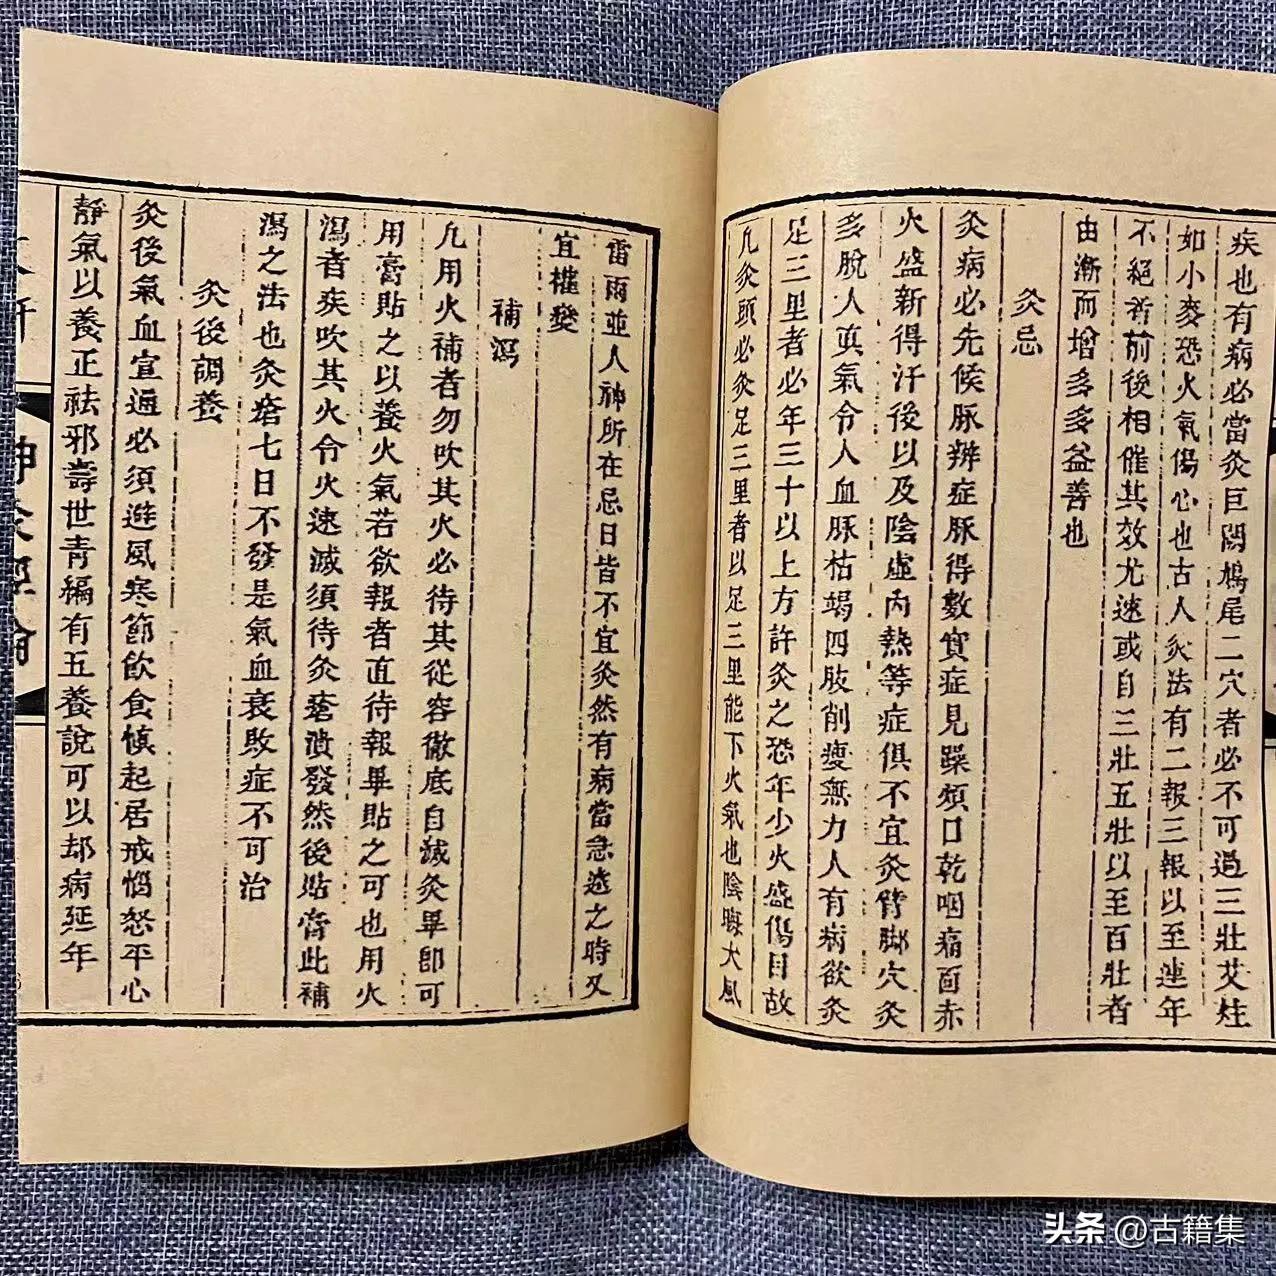 疾也有病必當灸巨闕鳩尾二穴者必不可過三壯艾炷
如小麥恐火氣傷心也古人灸法有二報三報以至連年
不絕者前後相催其效尤速或自三壯五壯以至百壯者
由漸而增多多益善也
灸忌
灸病必先候脉辨症脉得數實症見躁煩口乾咽痛面赤
火盛新得汗後以及陰虛內熱等症俱不宜灸臂脚穴灸
多脫人眞氣令人血脉枯竭四肢削瘦無力人有病欲灸
足三里者必年三十以上方許灸之恐年少火盛傷目故
凢灸頭必灸足三里者以足三里能下火氣也陰晦大風
雷雨並人神所在忌日皆不宜灸然有病當急遽之時又
宜權變
補瀉
凢用火補者勿吹其火必待其從容徹底自滅灸畢卽可
用膏貼之以養火氣若欲報者直待報畢貼之可也用火
瀉者疾吹其火令火速滅須待灸瘡潰發然後貼膏此補
瀉之法也灸瘡七日不發是氣血衰敗症不可治
灸後調養
灸後氣血宣通必須避風寒節飲食愼起居戒惱怒平心
靜氣以養正祛邪壽世靑編有五養說可以却病延年
神灸經綸
头条 @古籍集